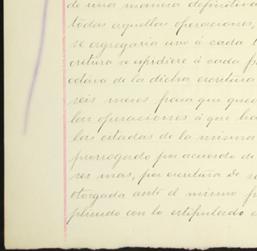 de una manera definitiva
todas aquellas operaciones,
se segregaria uno á cada
critura se expidiere á cada
octava de la dicha escritura
seis meses para que
las operaciones á que
las citadas de la misma
prorrogado por acuerdo de
ses mas, por escritura de
otorgada ante el mismo
pliendo con lo estipulado